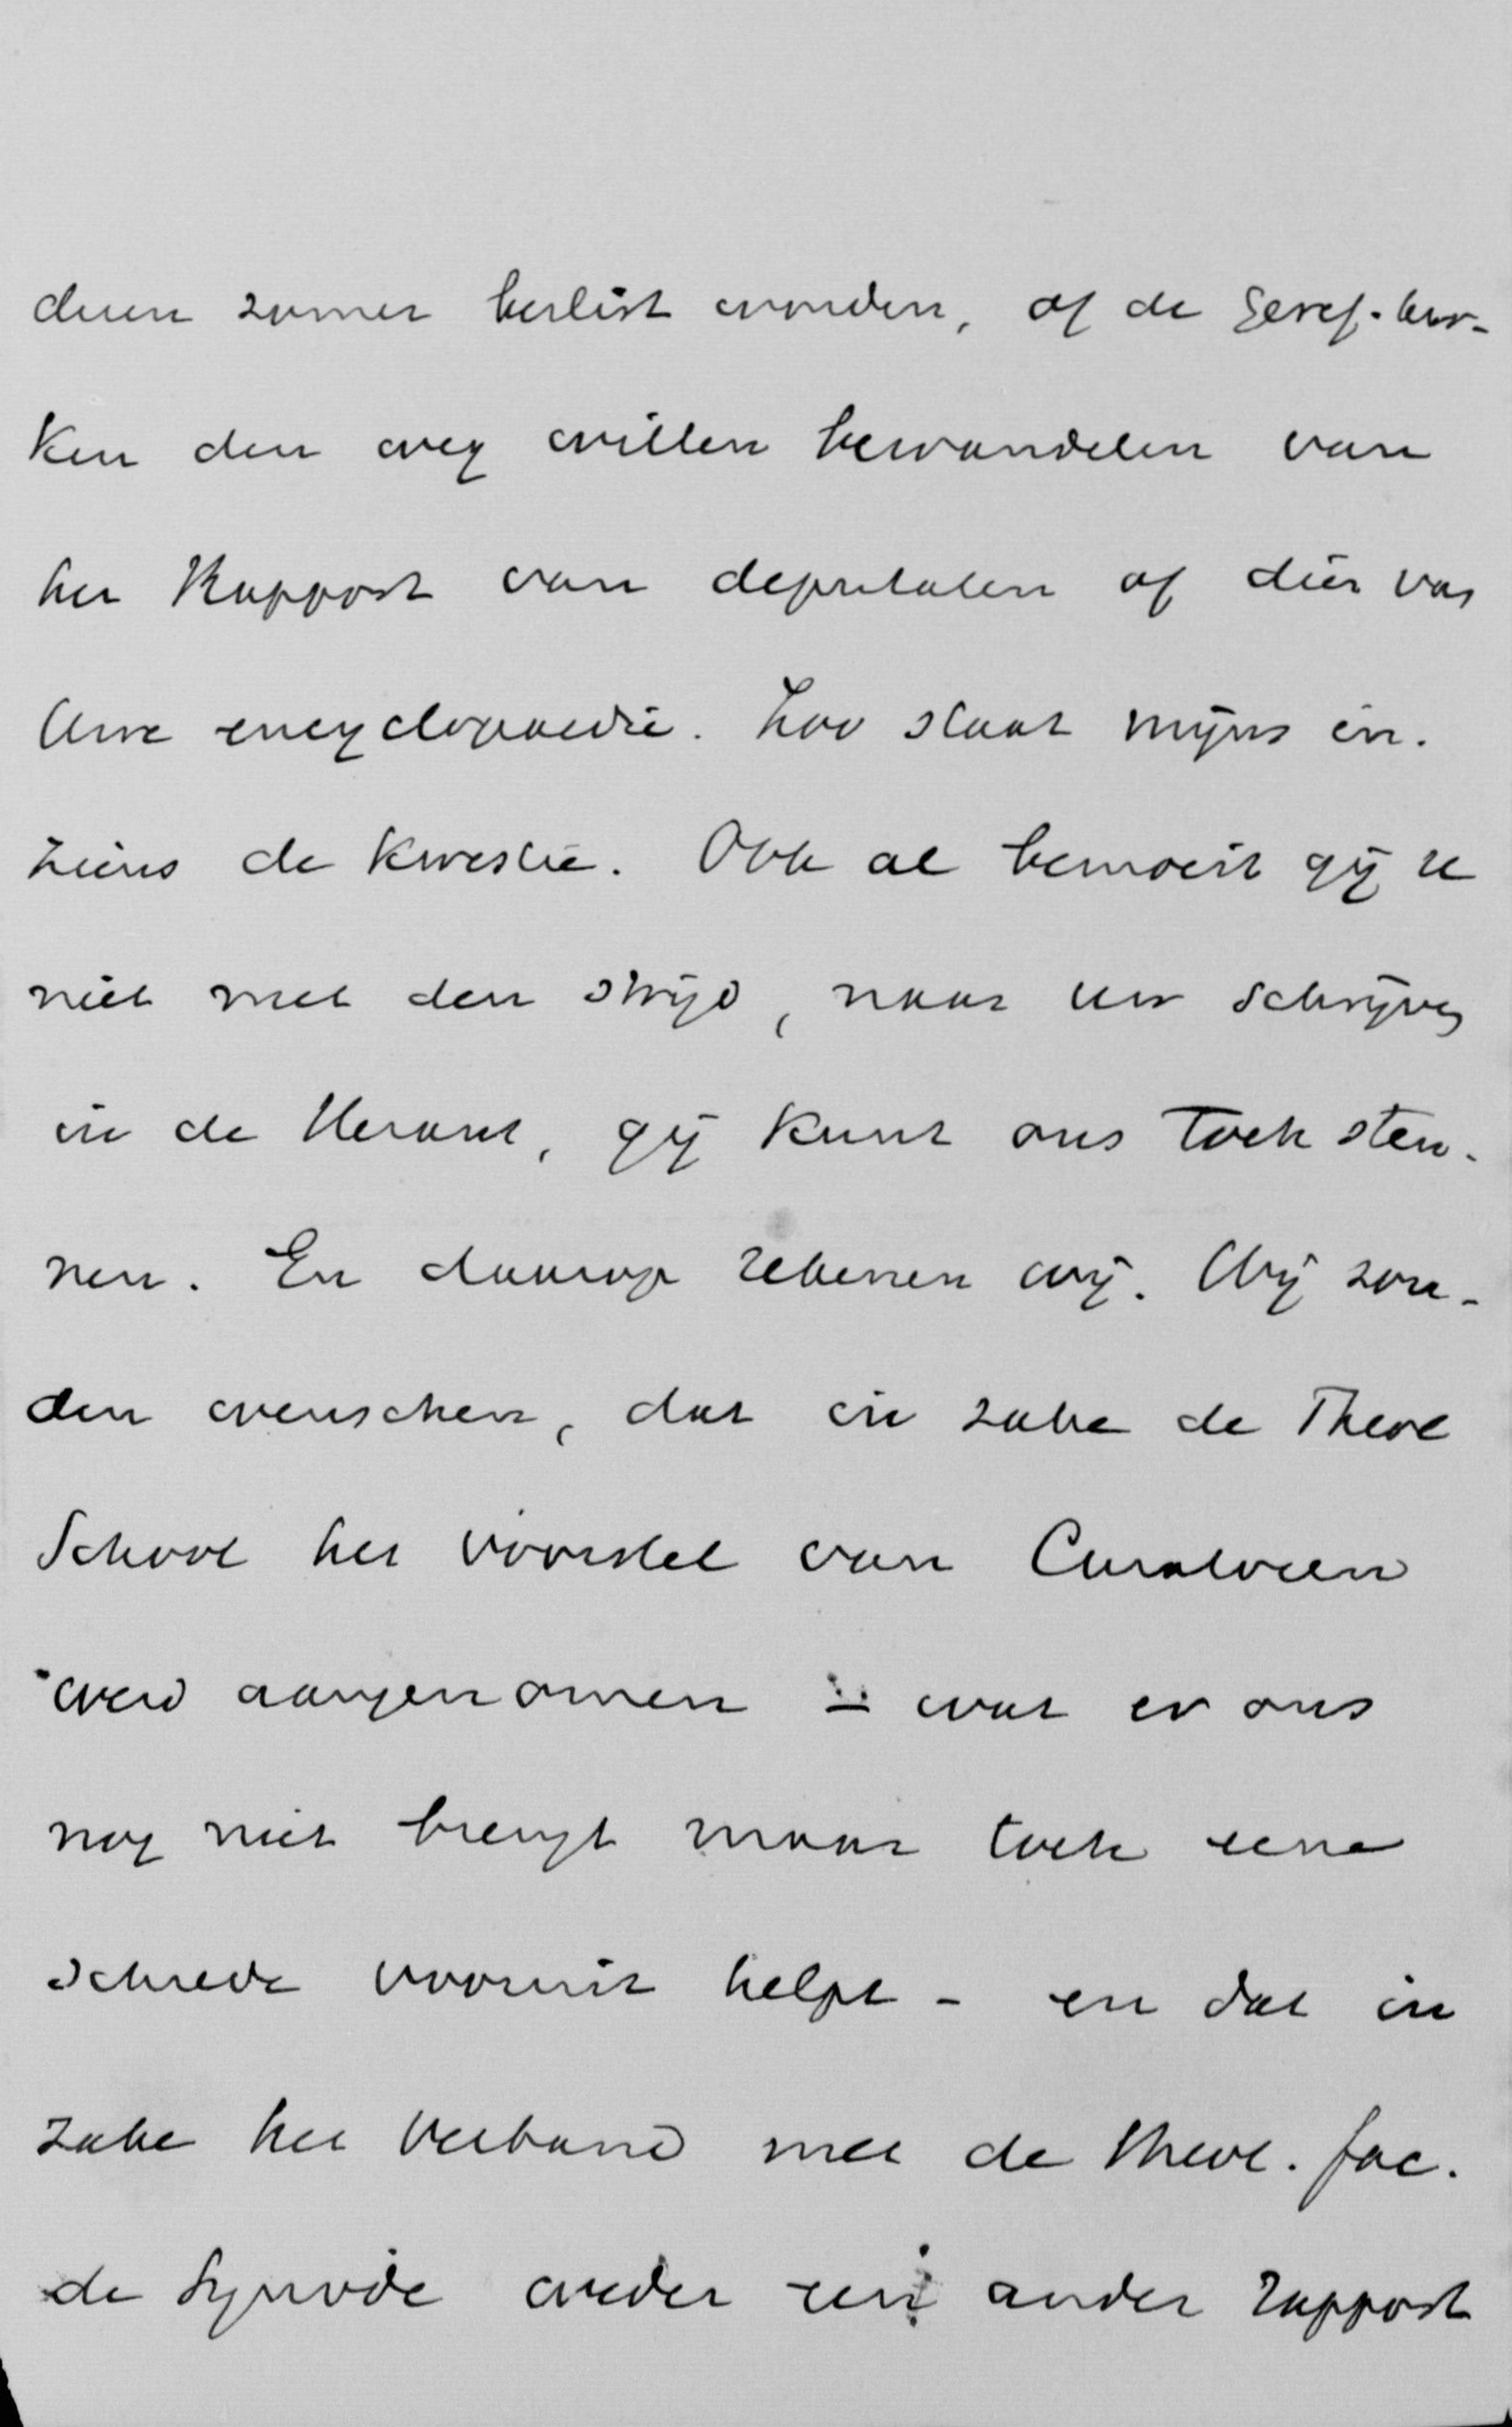 dezen zomer beslist worden, of de Geref. ker-
ken den weg willen bewandelen van
het Rapport van deputaten of dien van
Uwe encyclopaedie. Zoo staat mijns in-
ziens de kwestie. Ook al bemoeit gij U
niet met den strijd, naar uw schrijven
in de Heraut, gij kunt ons toch steu-
nen. En daarop rekenen wij. Wij zou-
den wenschen, dat in zake de Theol
School het voorstel van Curatoren
werd aangenomen - wat er ons
nog niet brengt maar toch eene
schrede vooruit helpt - en dat in
zake het verband met de theol. fac.
de Synode weder een ander rapport